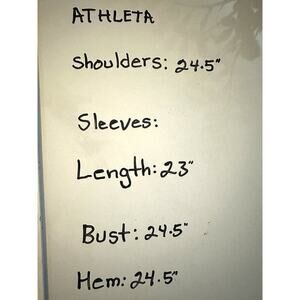 ATHLETA
Shoulders: 24.5"
Sleeves:
Length: 23"
Bust: 24.5"
Hem: 24.5"